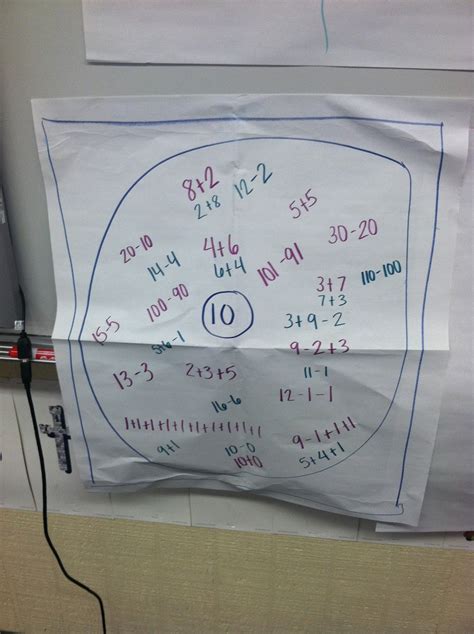 8+2
12-2
2+8
5+5
20-10
4+6
30-20
14-4
6+4
101-91
110-100
3+7
7+3
100-90
10
3+9-2
15-5
5+6-1
9-2+3
13-3
2+3+5
11-1
12-1-1
16-6
9-1+1+1
9+1
10-0
10+0
5+4+1